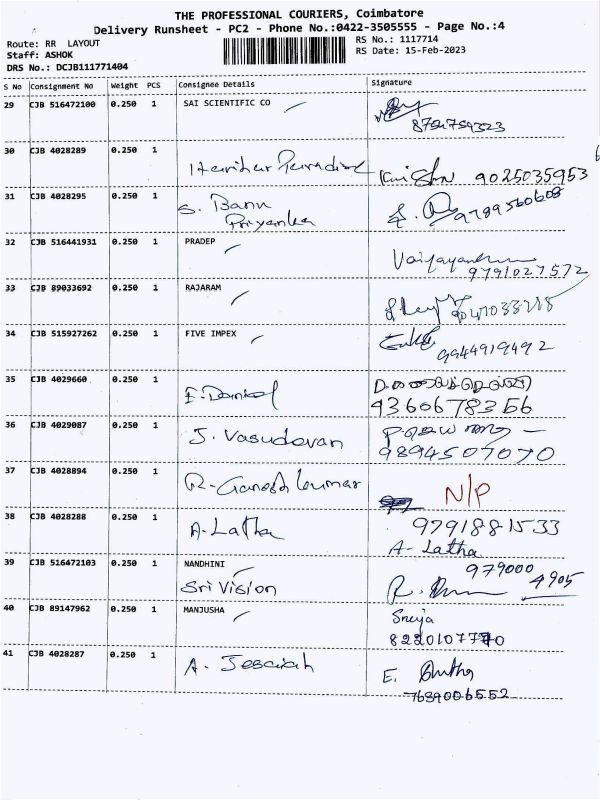 THE PROFESSIONAL COURIERS, Coimbatore
Delivery Runsheet - PC2 - Phone No.:0422-3505555 - Page No.:4
Route: RR LAYOUT
RS No.: 1117714
Staff: ASHOK
RS Date: 15-Feb-2023
DRS No.: DCJB111771404
S No Consignment No Weight PCS Consignee Details Signature
29 CJB 516472100 0.250 1 SAI SCIENTIFIC CO
8754759323
30 CJB 4028289 0.250 1
Harihar Paradise 9025035953
31 CJB 4028295 0.250 1 S. Banu
Priyanka 9789560608
32 CJB 516441931 0.250 1 PRADEP
9791027572
33 CJB 89033692 0.250 1 RAJARAM
34 CJB 515927262 0.250 1 FIVE IMPEX
9944919492
35 CJB 4029660 0.250 1
E. Daniel 4360678356
36 CJB 4029087 0.250 1
J. Vasudevan 9894507070
37 CJB 4028894 0.250 1
R. Ganesh kumar N/P
38 CJB 4028288 0.250 1 9791881533
A. Latha A. Latha
39 CJB 516472103 0.250 1 NANDHINI 979000
Sri Vision 4905
40 CJB 89147962 0.250 1 MANJUSHA
41 CJB 4028287 0.250 1
A. Jesaiah E.
7639006552